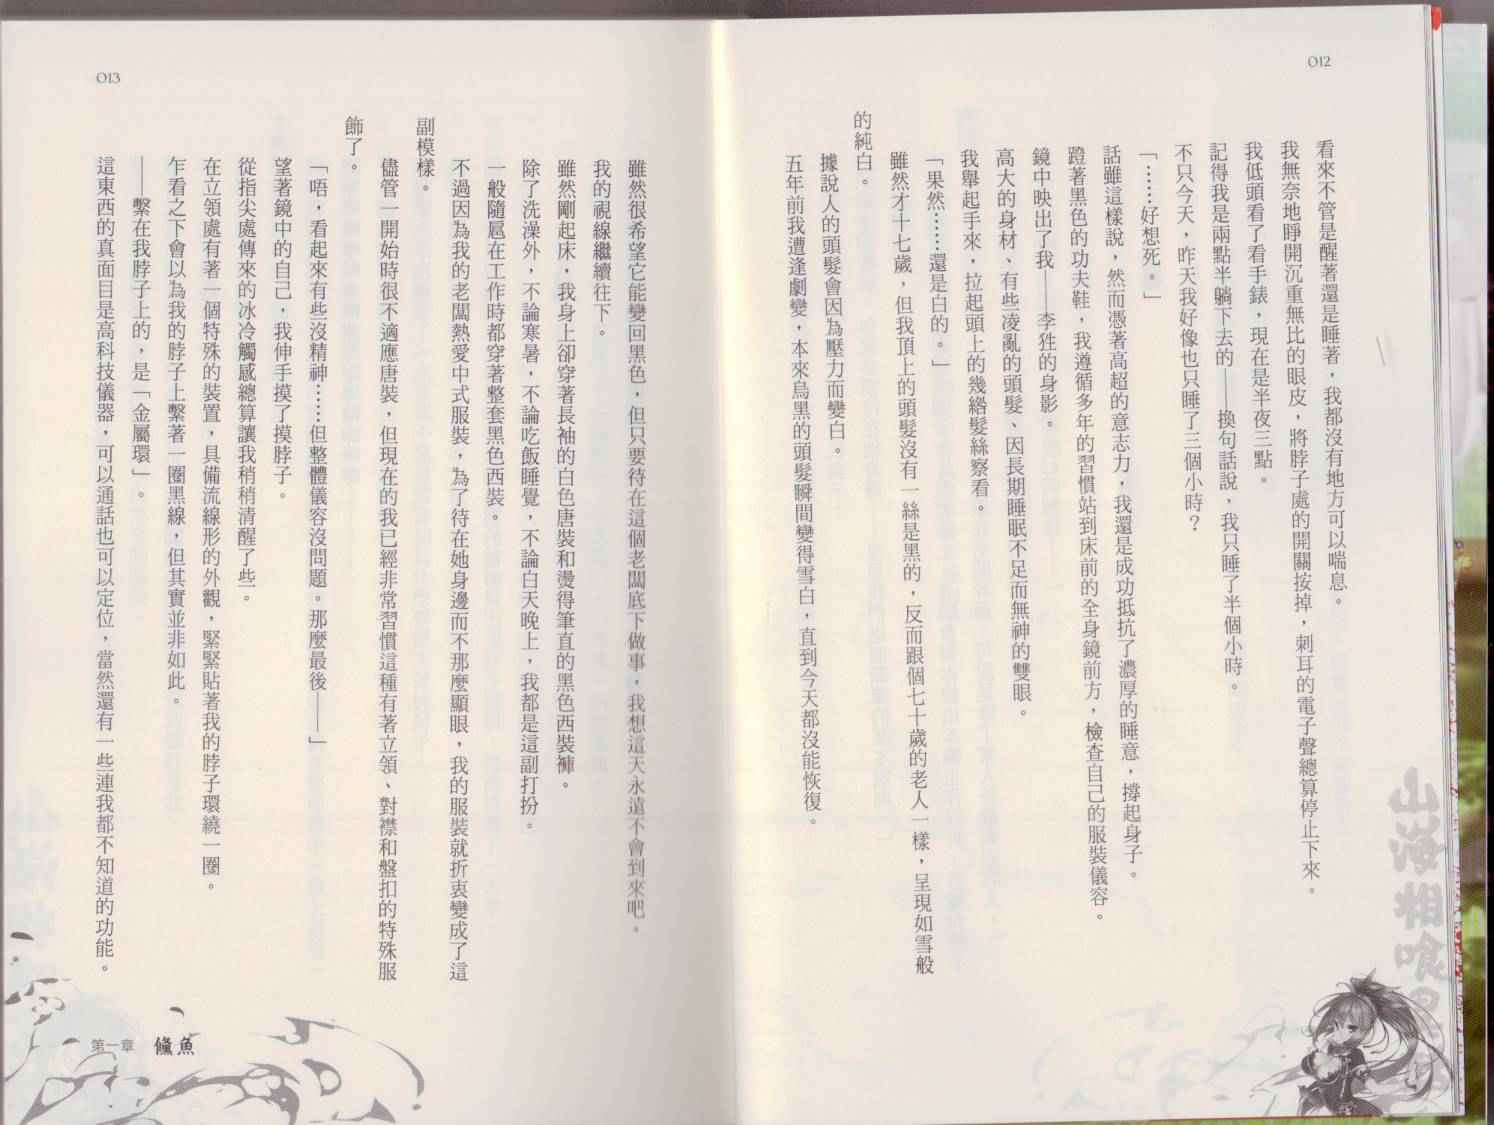 012
看來不管是醒著還是睡著，我都沒有地方可以喘息。
我無奈地睜開沉重無比的眼皮，將脖子處的開關按掉，刺耳的電子聲總算停止下來。
我低頭看了看手錶，現在是半夜三點。
記得我是兩點半躺下去的——換句話說，我只睡了半個小時。
不只今天，昨天我好像也只睡了三個小時？
「……好想死。」
話雖這樣說，然而憑著高超的意志力，我還是成功抵抗了濃厚的睡意，撐起身子。
蹬著黑色的功夫鞋，我遵循多年的習慣站到床前的全身鏡前方，檢查自己的服裝儀容。
鏡中映出了我——李狌的身影。
高大的身材、有些凌亂的頭髮、因長期睡眠不足而無神的雙眼。
我舉起手來，拉起頭上的幾綹髮絲察看。
「果然……還是白的。」
雖然才十七歲，但我頂上的頭髮沒有一絲是黑的，反而跟個七十歲的老人一樣，呈現如雪般
的純白。
據說人的頭髮會因為壓力而變白。
五年前我遭逢劇變，本來烏黑的頭髮瞬間變得雪白，直到今天都沒能恢復。
山海相喰
013
雖然很希望它能變回黑色，但只要待在這個老闆底下做事，我想這天永遠不會到來吧。
我的視線繼續往下。
雖然剛起床，我身上卻穿著長袖的白色唐裝和燙得筆直的黑色西裝褲。
除了洗澡外，不論寒暑，不論吃飯睡覺，不論白天晚上，我都是這副打扮。
一般隨扈在工作時都穿著整套黑色西裝。
不過因為我的老闆熱愛中式服裝，為了待在她身邊而不那麼顯眼，我的服裝就折衷變成了這
副模樣。
儘管一開始時很不適應唐裝，但現在的我已經非常習慣這種有著立領、對襟和盤扣的特殊服
飾了。
「唔，看起來有些沒精神……但整體儀容沒問題。那麼最後——」
望著鏡中的自己，我伸手摸了摸脖子。
從指尖處傳來的冰冷觸感總算讓我稍稍清醒了些。
在立領處有著一個特殊的裝置，具備流線形的外觀，緊緊貼著我的脖子環繞一圈。
乍看之下會以為我的脖子上繫著一圈黑線，但其實並非如此。
——繫在我脖子上的，是「金屬環」。
這東西的真面目是高科技儀器，可以通話也可以定位，當然還有一些連我都不知道的功能。
第一章 儵魚